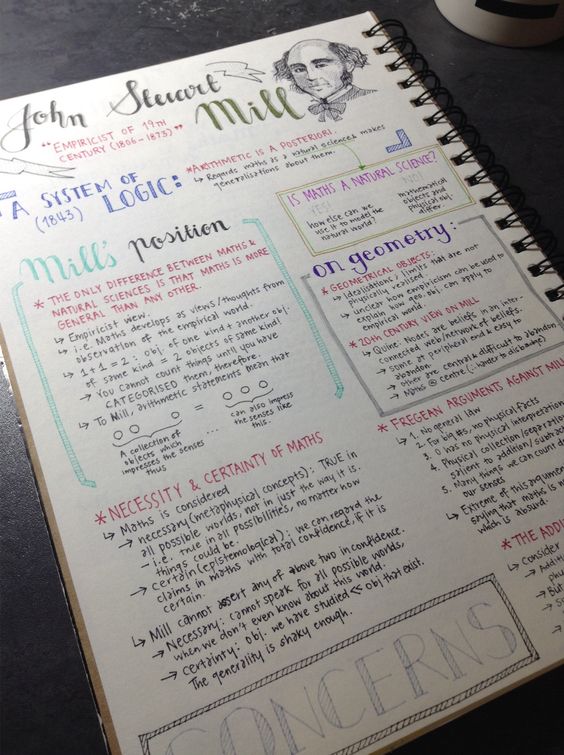 John Stewart Mill
"EMPIRICIST OF 19TH
CENTURY (1806-1873)"
A SYSTEM OF
(1843) LOGIC:
*ARITHMETIC IS A POSTERIORI.
↳ Regards maths as a natural science & makes
generalisations about them.
IS MATHS A NATURAL SCIENCE?
YES!
How else can we
use it to model the
natural world?
NO!
mathematical
objects and
physical obj
differ.
Mill's position
* THE ONLY DIFFERENCE BETWEEN MATHS &
NATURAL SCIENCES IS THAT MATHS IS MORE
GENERAL THAN ANY OTHER.
↳ Empiricist view.
↳ i.e. Maths develop as views/thoughts from
observation of the empirical world.
↳ 1+1=2 : obj. of one kind + another obj.
of same kind = 2 objects of same kind!
↳ You cannot count things until you have
CATEGORISED them, therefore,
↳ To Mill, arithmetic statements mean that
=
A collection of
objects which
impresses the senses
thus
...
can also impress
the senses like
this.
on geometry:
* GEOMETRICAL OBJECTS:
↳ Idealisations / limits that are not
physically realised.
↳ unclear how empiricism can be used to
explain how geo. obj can apply to
empirical world.
* 20TH CENTURY VIEW ON MILL
↳ Quine: Nodes are beliefs in an inter-
connected web/network of beliefs.
→ some at peripheral end & easy to
abandon.
→ other are central & difficult to abandon
↳ Maths @ centre (∴ harder to dislodge)
* FREGEAN ARGUMENTS AGAINST MILL
↳ 1. No general law
↳ 2. For big #s, no physical facts
↳ 3. 0 has no physical interpretation
↳ 4. Physical collection/separation
salient to addition/subtract
↳ 5. Many things we can count d
our senses
↳ Extreme of this argument
saying that maths is n
which is absurd.
* NECESSITY & CERTAINTY OF MATHS
↳ Maths is considered
→ necessary (metaphysical concepts): TRUE in
all possible worlds, not in just the way it is.
- i.e. true in all possibilities, no matter how
things could be.
→ certain (epistemological): we can regard the
claims in maths with total confidence, if it is
certain.
↳ Mill cannot assert any of above two in confidence.
→ Necessary: cannot speak for all possible worlds,
when we don't even know about this world.
→ certainty: obj. we have studied << obj that exist.
The generality is shaky enough.
* THE ADDI
↳ Consider
→ Addit
phy
→ But
CONCERNS